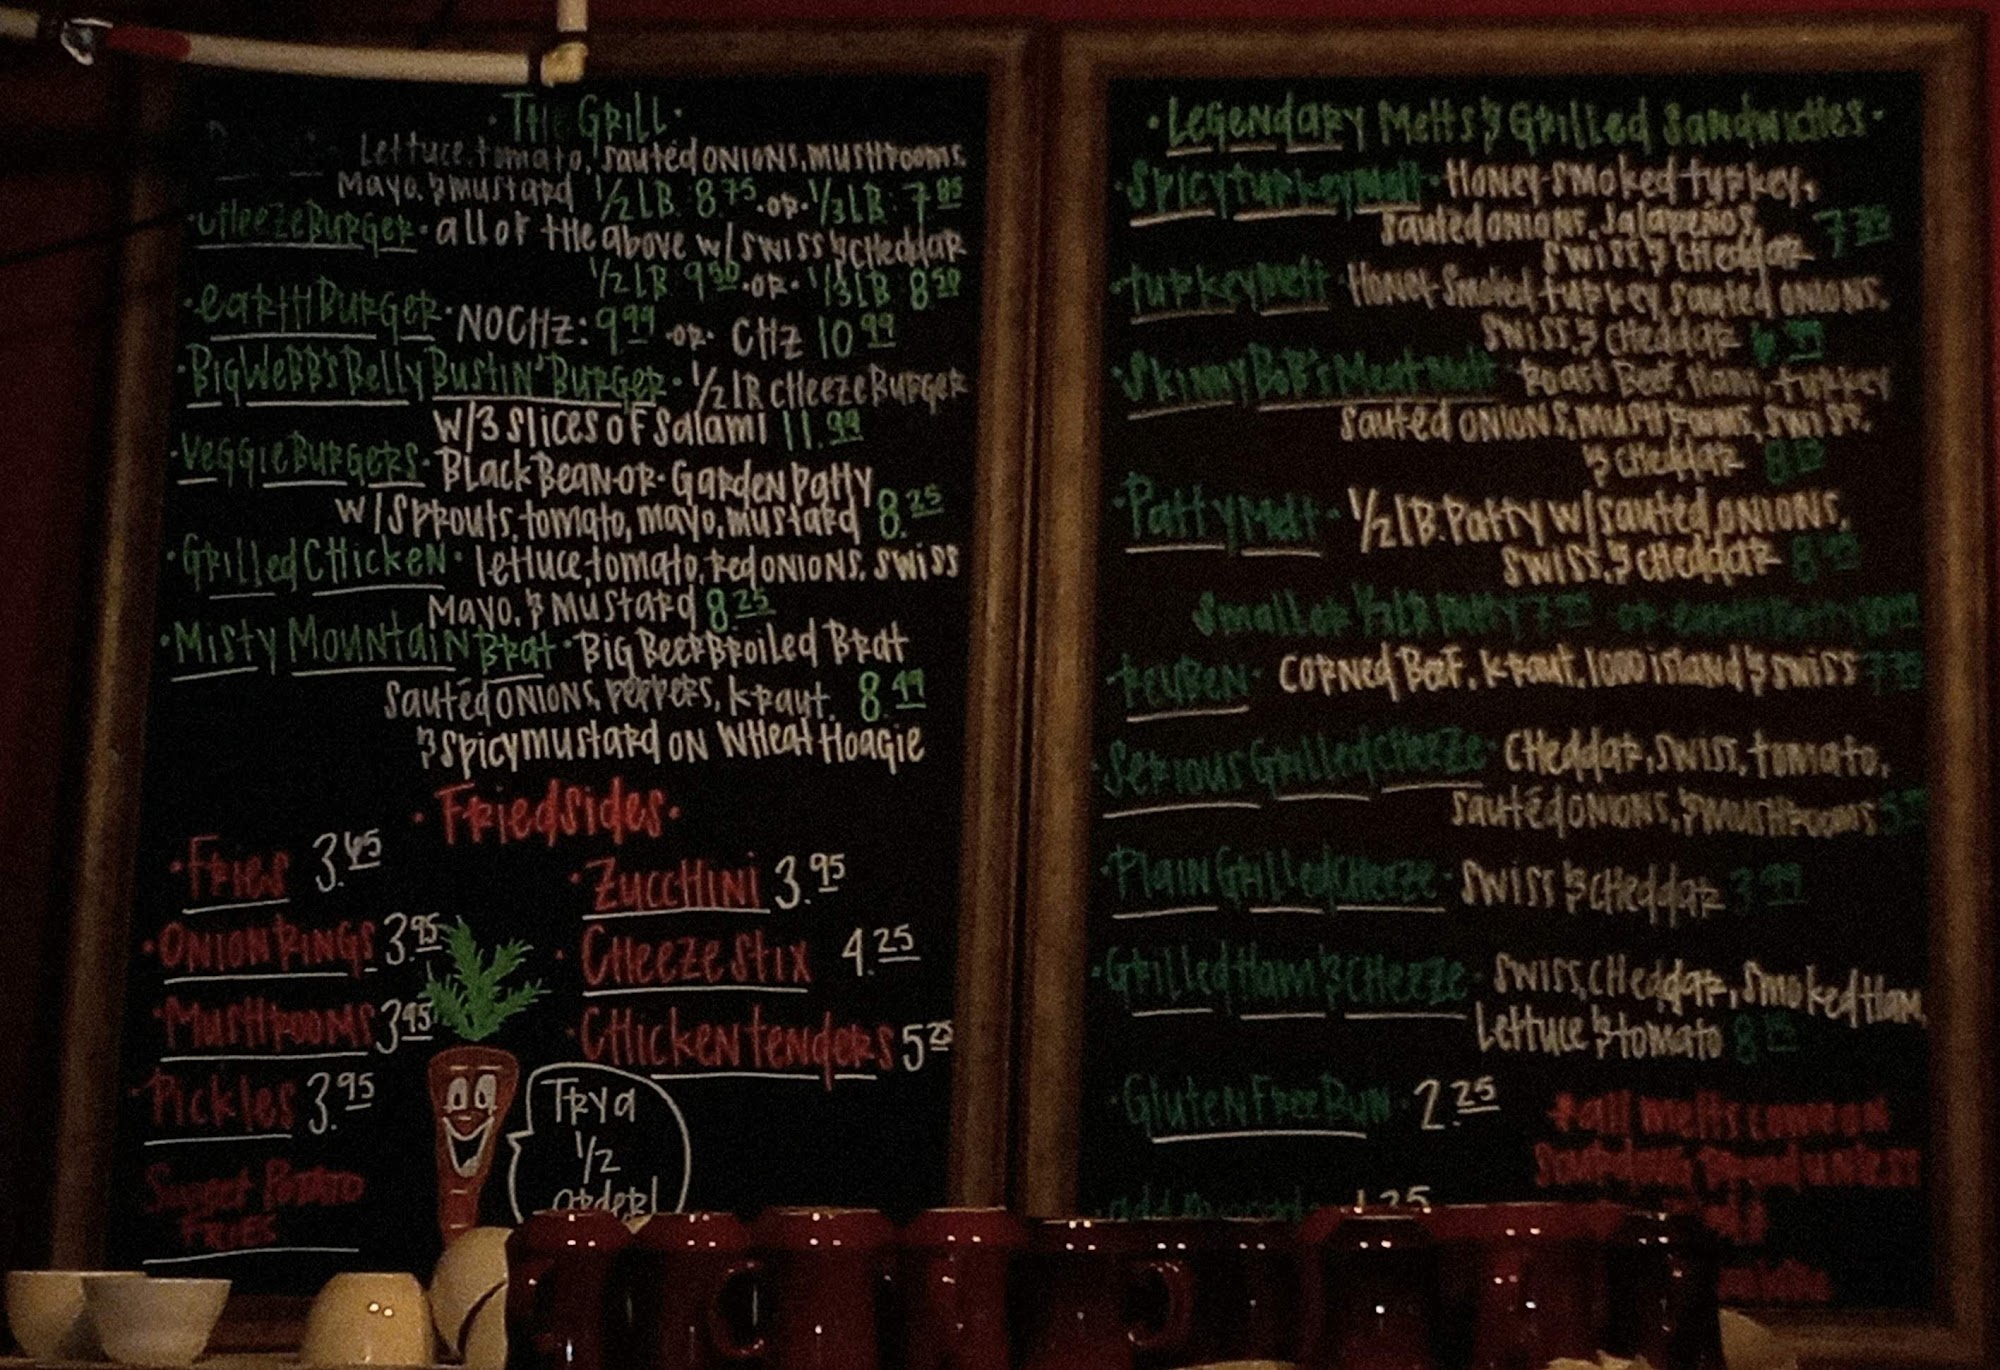 · The Grill ·
Lettuce, tomato, sautéd onions, mushrooms,
Mayo, & mustard 1/2 LB. 8.75 · or · 1/3 LB. 7.85
· CheezeBurger · all of the above w/ swiss & cheddar
1/2 LB 9.50 · or · 1/3 LB 8.50
· earth Burger · NO CHZ: 9.99 · or · CHZ 10.99
· Big Webb's Belly Bustin' Burger · 1/2 LB cheezeBurger
w/ 3 slices of salami 11.99
· Veggie Burgers · Black Bean · or · Garden Patty
w/ sprouts, tomato, mayo, mustard 8.25
· Grilled Chicken · lettuce, tomato, red onions, swiss
Mayo, & Mustard 8.25
· Misty Mountain Brat · Big Beer Broiled Brat
sautéd onions, peppers, kraut, 8.49
& spicy mustard on wheat hoagie
· Fried sides ·
· Fries 3.
· Zucchini 3.95
· Onion Rings 3.95
· Cheeze stix 4.25
· Mushrooms 3.95
· Chicken tenders 5.25
· Pickles 3.95
Try a
1/2
order!
Sweet Potato
Fries
· Legendary Melts & Grilled Sandwiches ·
· Spicy turkey melt · Honey smoked turkey,
sauted onions, jalapeños,
swiss & cheddar
· turkey melt · Honey smoked turkey, sauted onions,
swiss, & cheddar
· Skinny Bob's Meat Melt · Roast Beef, Ham, turkey
sauted onions, mushrooms, swiss,
& cheddar
· Patty Melt · 1/2 LB. Patty w/ sauted onions,
swiss, & cheddar
small or
· reuben · corned Beef, kraut, 1000 island & swiss
· Serious Grilled Cheeze · Cheddar, swiss, tomato,
sautéd onions, & mushrooms
· Plain Grilled Cheeze · swiss & cheddar 3.99
· Grilled Ham & Cheeze · swiss, cheddar, smoked Ham,
Lettuce & tomato
· Gluten Free Bun · 2.25
* all melts come on
sourdough bread unless
add 1.25